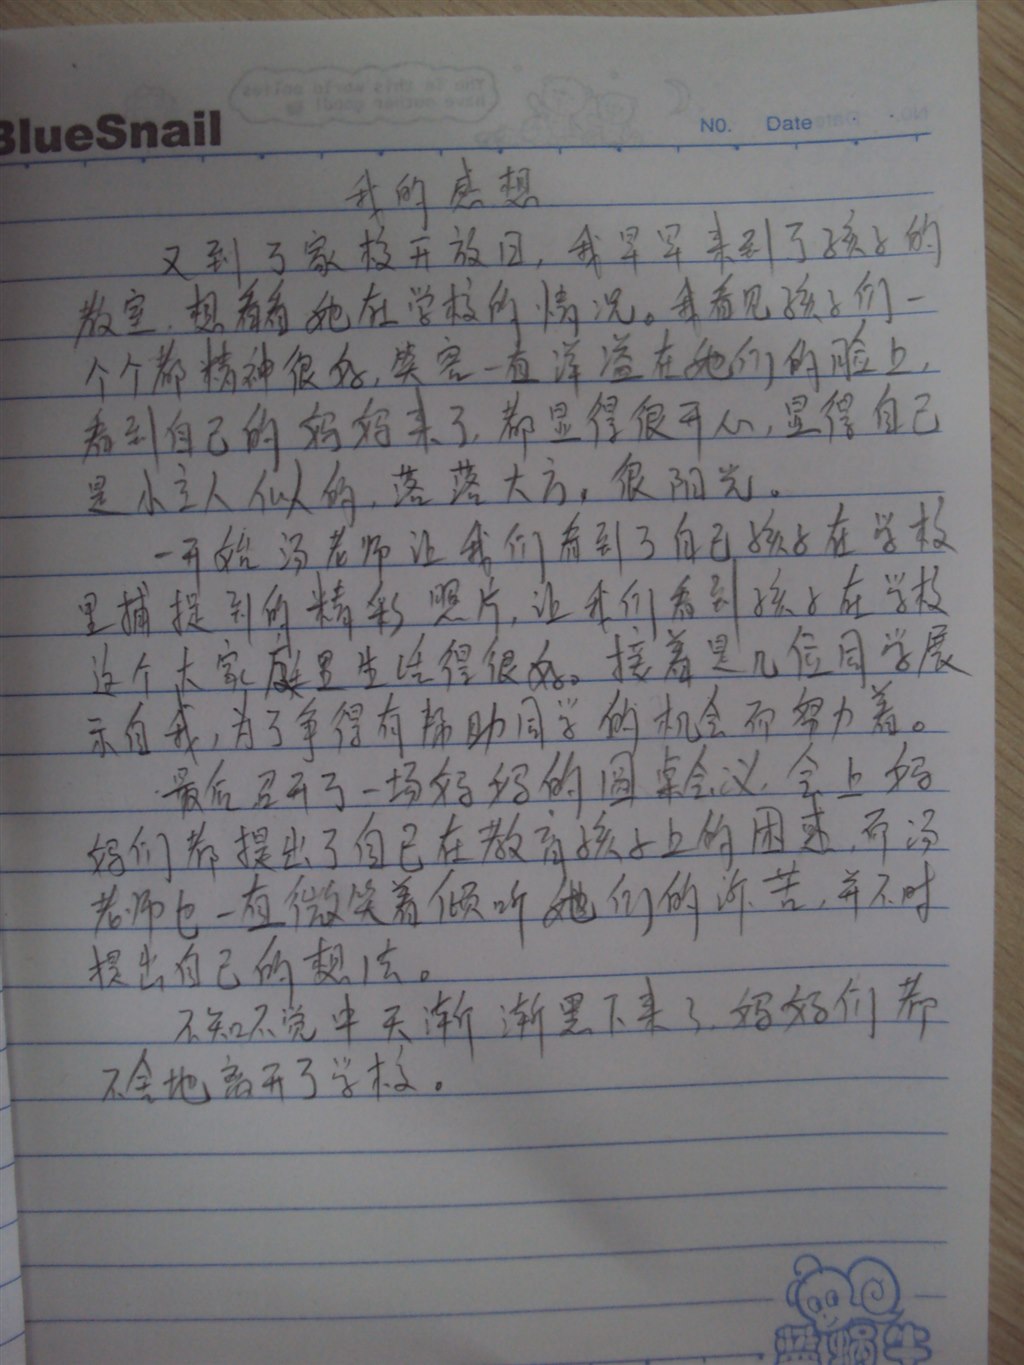 BlueSnail
NO. Date
我的感想
又到了家校开放日，我早早来到了孩子的
教室，想看看她在学校的情况。我看见孩子们一
个个都精神很好，笑容一直洋溢在她们的脸上，
看到自己的妈妈来了，都显得很开心，显得自己
是小主人似的，落落大方，很阳光。
一开始汤老师让我们看到了自己孩子在学校
里捕捉到的精彩照片，让我们看到孩子在学校
这个大家庭里生活得很好。接着是几位同学展
示自我，为了争得有帮助同学的机会而努力着。
最后召开了一场妈妈的圆桌会议，会上妈
妈们都提出了自己在教育孩子上的困惑，而汤
老师也一直微笑着倾听她们的诉苦，并不时
提出自己的想法。
不知不觉中天渐渐黑下来了，妈妈们都
不舍地离开了学校。
蓝蜗牛